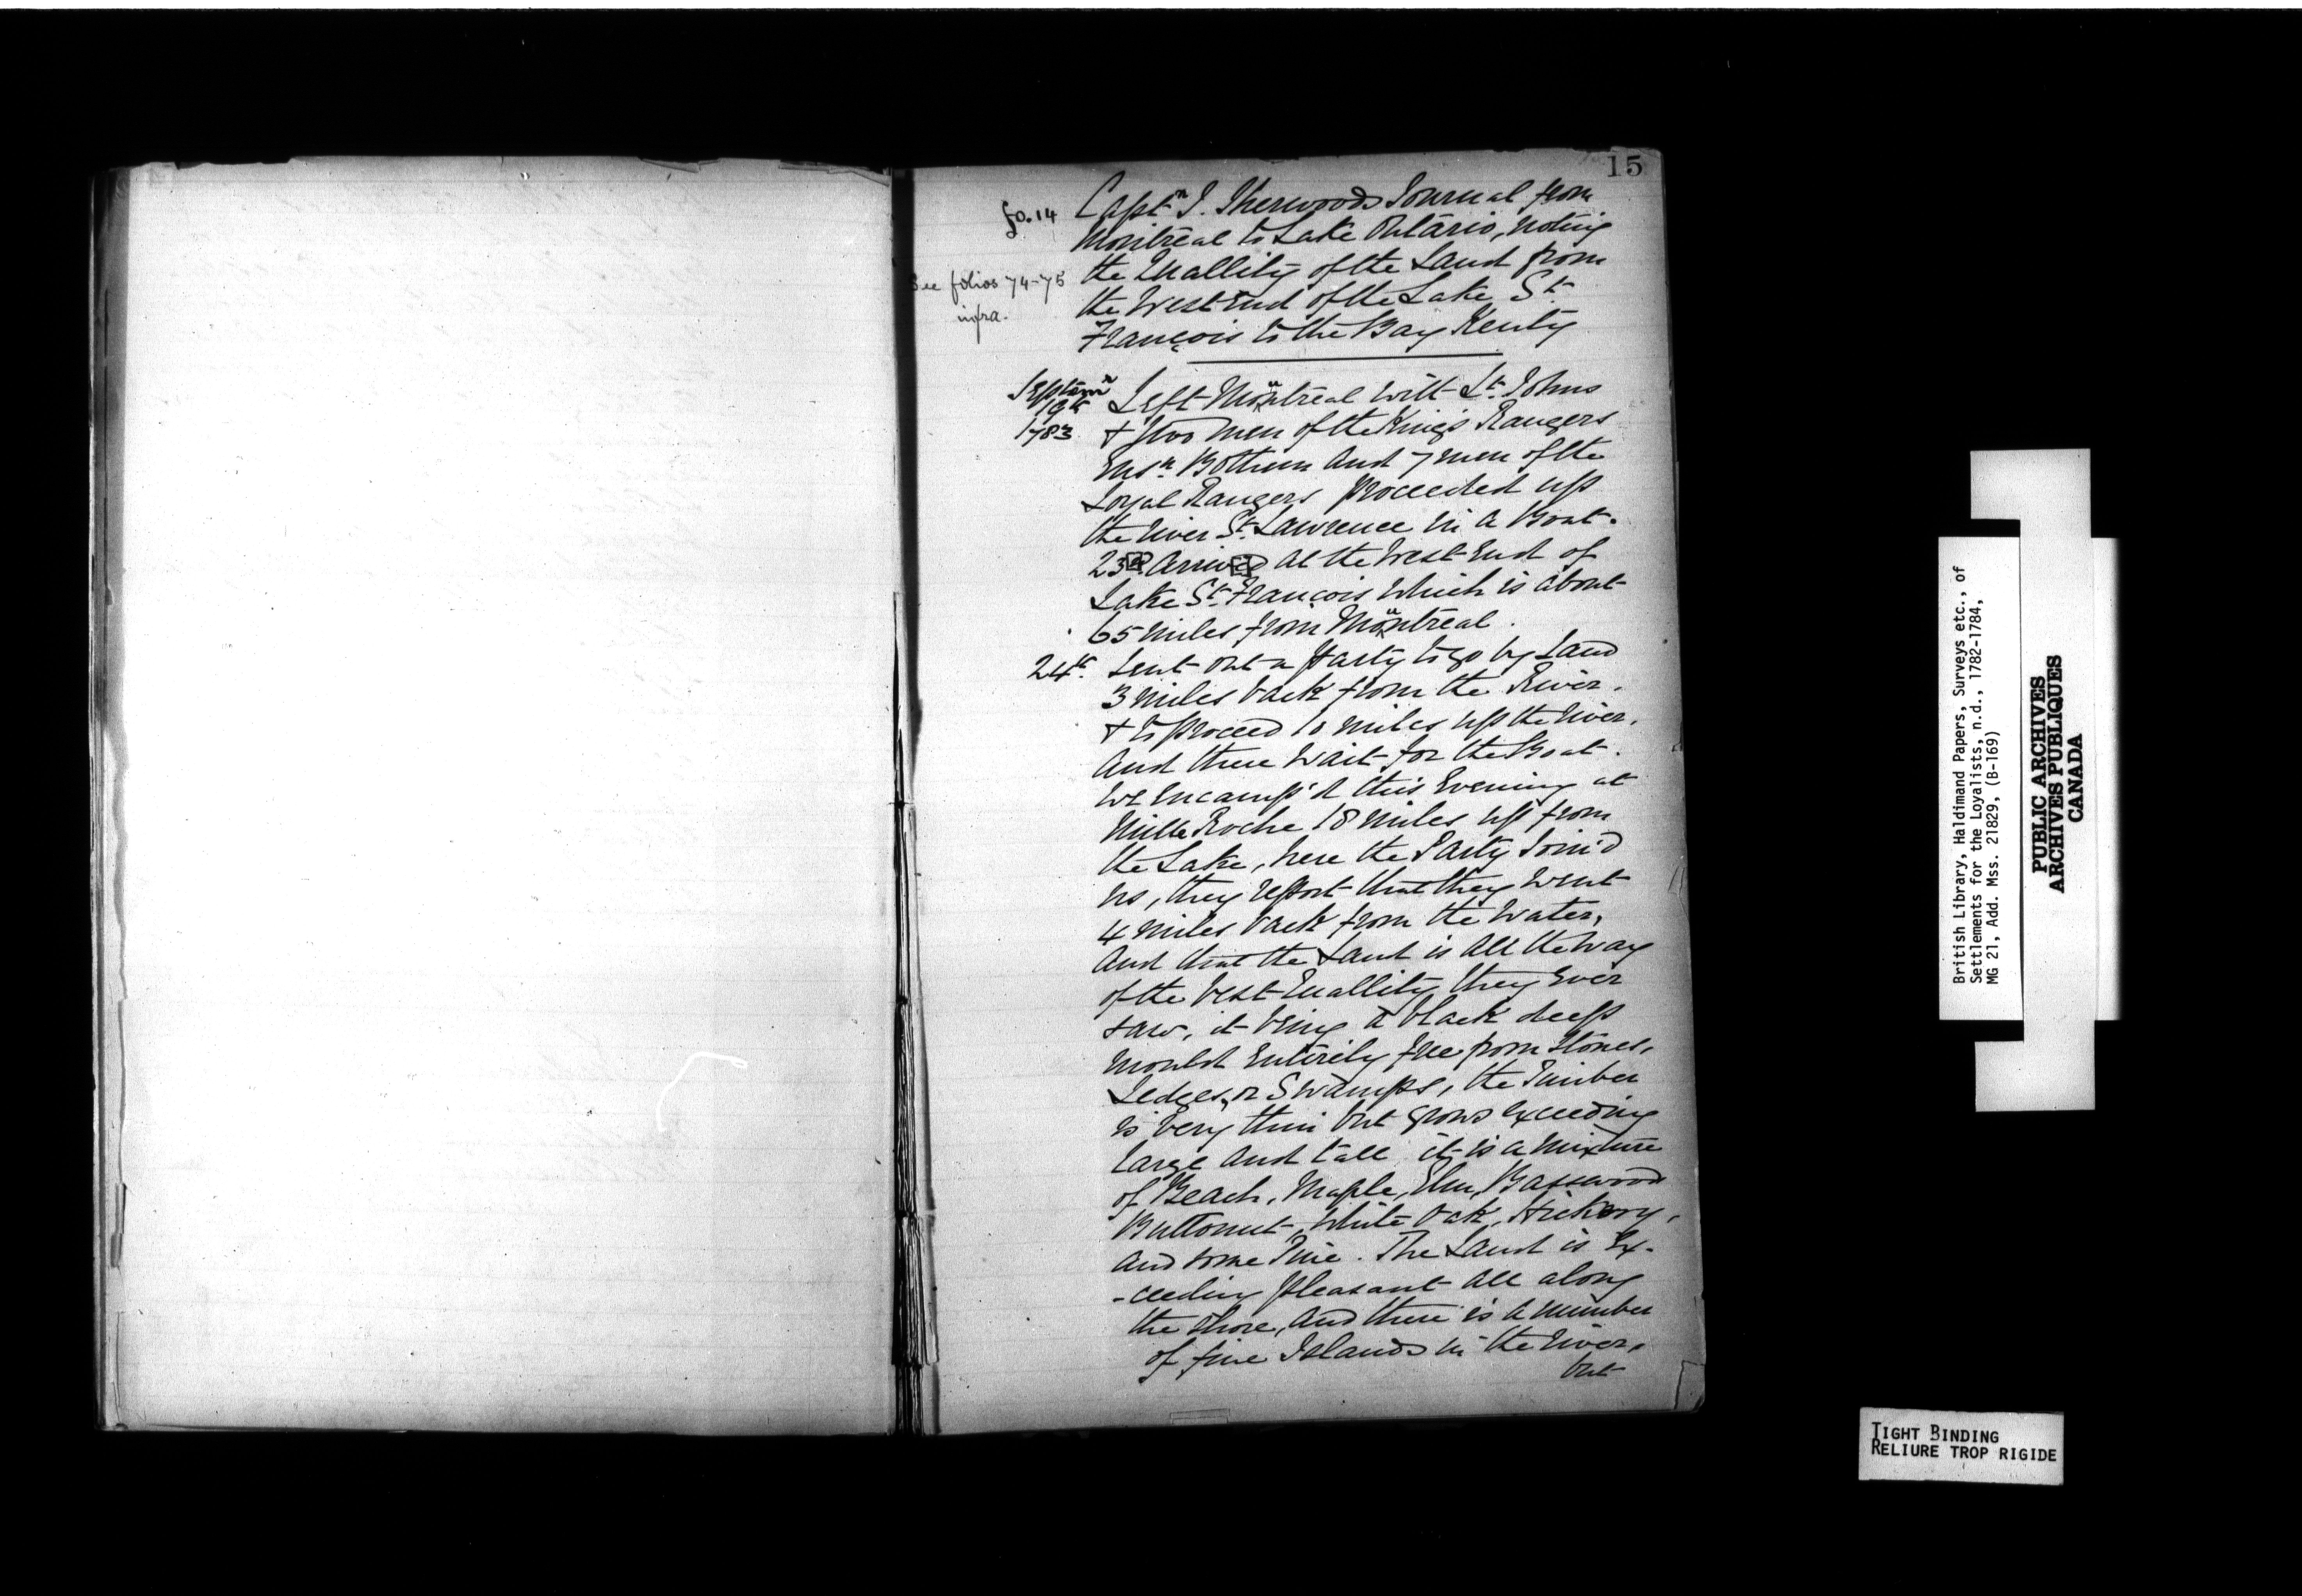 15
fo. 14
Capt.n J. Sherwoods Journal from
Montreal to Lake Ontario, noting
the Quallity of the Land from
See folios 74-75
infra.
the West End of the Lake St.
François to the Bay Kenty
Septem.r
19th
1783
Left Montreal with Lt. Johns
& two men of the King's Rangers
Ens.n Bothum and 7 men of the
Loyal Rangers proceeded up
the River St. Lawrence in a Boat.
23d Arrived at the West End of
Lake St. François which is about
65 miles from Montreal.
24th Sent out a Party to go by Land
3 miles back from the River.
& to proceed 10 miles up the River,
And there wait for the Boat.
We encamp'd this Evening at
Mille Roche 18 miles up from
the Lake, here the Party Join'd
us, they report that they went
4 miles back from the Water,
And that the Land is all the way
of the best Quallity they Ever
saw, it being a black deep
mould Entirely free from Stones,
Ledges, or Swamps, the Timber
is very thin but grows exceeding
large and tall it is a mixture
of Beach, Maple, Elm, Basswood
Buttonut, White Oak, Hickory,
And some Pine. The Land is Ex-
-ceeding pleasant all along
the Shore, And there is a number
of fine Islands in the River,
but
British Library, Haldimand Papers, Surveys etc., of
Settlements for the Loyalists, n.d., 1782-1784,
MG 21, Add. Mss. 21829, (B-169)
PUBLIC ARCHIVES
ARCHIVES PUBLIQUES
CANADA
TIGHT BINDING
RELIURE TROP RIGIDE